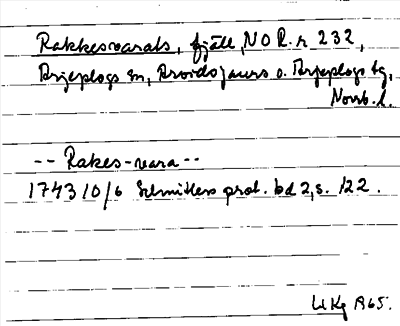 Rakkesvarats, fjäll, NO R. r 232,
Arjeplogs sn, Arvidsjaurs o. Arjeplogs tg,
Norrb. l.
-- Rakes-vara --
1743 10/6 Schnitlers prot. bd 2, s. 122.
UKg 1965.